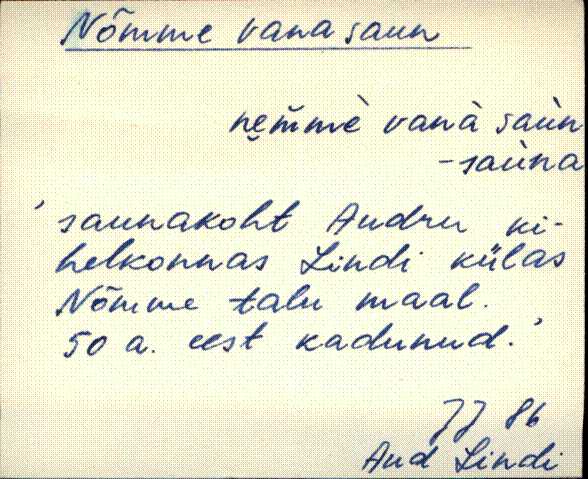 Nõmme vana saun
nem̆mè vanà saùn
-saùna
'saunakoht Audru ki-
helkonnas Lindi külas
Nõmme talu maal.
50 a. eest kadunud.'
JJ 86
Aud Lindi